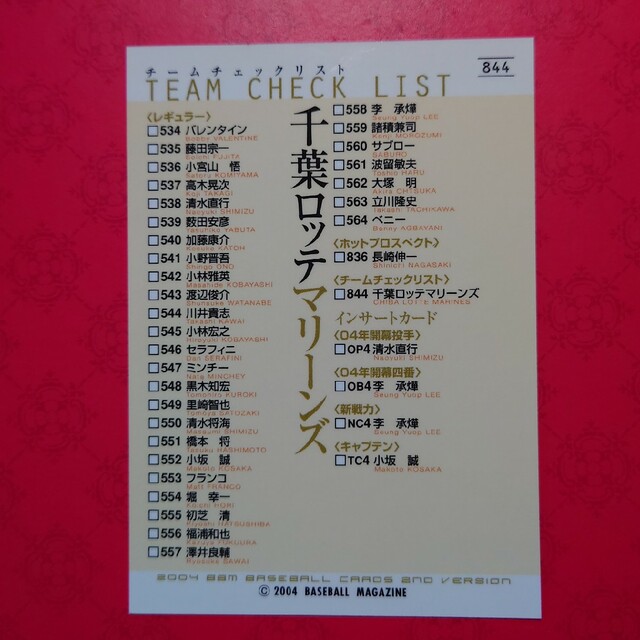 チームチェックリスト
TEAM CHECK LIST
844
〈レギュラー〉
534 バレンタイン
Bobby VALENTINE
535 藤田宗一
Soichi FUJITA
536 小宮山 悟
Satoru KOMIYAMA
537 高木晃次
Koji TAKAGI
538 清水直行
Naoyuki SHIMIZU
539 薮田安彦
Yasuhiko YABUTA
540 加藤康介
Kosuke KATOH
541 小野晋吾
Shingo ONO
542 小林雅英
Masahide KOBAYASHI
543 渡辺俊介
Shunsuke WATANABE
544 川井貴志
Takashi KAWAI
545 小林宏之
Hiroyuki KOBAYASHI
546 セラフィニ
Dan SERAFINI
547 ミンチー
Nate MINCHEY
548 黒木知宏
Tomohiro KUROKI
549 里崎智也
Tomoya SATOZAKI
550 清水将海
Masaumi SHIMIZU
551 橋本 将
Tasuku HASHIMOTO
552 小坂 誠
Makoto KOSAKA
553 フランコ
Matt FRANCO
554 堀 幸一
Koichi HORI
555 初芝 清
Kiyoshi HATSUSHIBA
556 福浦和也
Kazuya FUKUURA
557 澤井良輔
Ryosuke SAWAI
千葉ロッテマリーンズ
558 李 承燁
Seung Yuop LEE
559 諸積兼司
Kenji MOROZUMI
560 サブロー
SABURO
561 波留敏夫
Toshio HARU
562 大塚 明
Akira OHTSUKA
563 立川隆史
Takashi TACHIKAWA
564 ベニー
Benny AGBAYANI
〈ホットプロスペクト〉
836 長崎伸一
Shinichi NAGASAKI
〈チームチェックリスト〉
844 千葉ロッテマリーンズ
CHIBA LOTTE MARINES
インサートカード
〈04年開幕投手〉
OP4 清水直行
Naoyuki SHIMIZU
〈04年開幕四番〉
OB4 李 承燁
Seung Yuop LEE
〈新戦力〉
NC4 李 承燁
Seung Yuop LEE
〈キャプテン〉
TC4 小坂 誠
Makoto KOSAKA
2004 BBM BASEBALL CARDS 2ND VERSION
© 2004 BASEBALL MAGAZINE